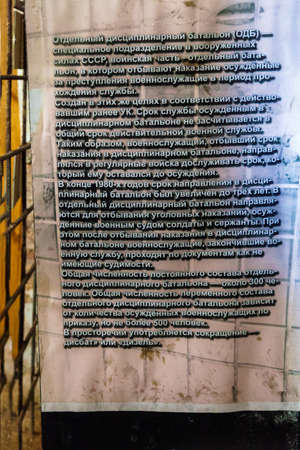 Отдельный дисциплинарный батальон (ОДБ) –
специальное подразделение в вооруженных
силах СССР, воинская часть - отдельный бата-
льон, в котором отбывают наказание осуждённые
за преступления военнослужащие в период про-
хождения службы.
Создан в этих же целях в соответствии с действо-
вавшим ранее УК. Срок службы осужденным в
дисциплинарном батальоне не засчитывается в
общий срок действительной военной службы.
Таким образом, военнослужащий, отбывший срок
наказания в дисциплинарном батальоне, направ-
лялся в регулярные войска дослуживать срок, ко-
торый ему оставался до осуждения.
В конце 1980-х годов срок направления в дисци-
плинарный батальон был увеличен до трех лет. В
отдельный дисциплинарный батальон направля-
ются для отбывания уголовных наказаний, осуж-
денные военным судом солдаты и сержанты. При
этом после отбывания наказания в дисциплинар-
ном батальоне военнослужащие, закончившие во-
енную службу, проходят по документам как не
имеющие судимости.
Общая численность постоянного состава отдель-
ного дисциплинарного батальона – около 300 че-
ловек. Общая численность переменного состава
отдельного дисциплинарного батальона зависит
от количества осужденных военнослужащих по
приказу, но не более 500 человек.
В просторечии употребляется сокращение –
дисбат» или «дизель».